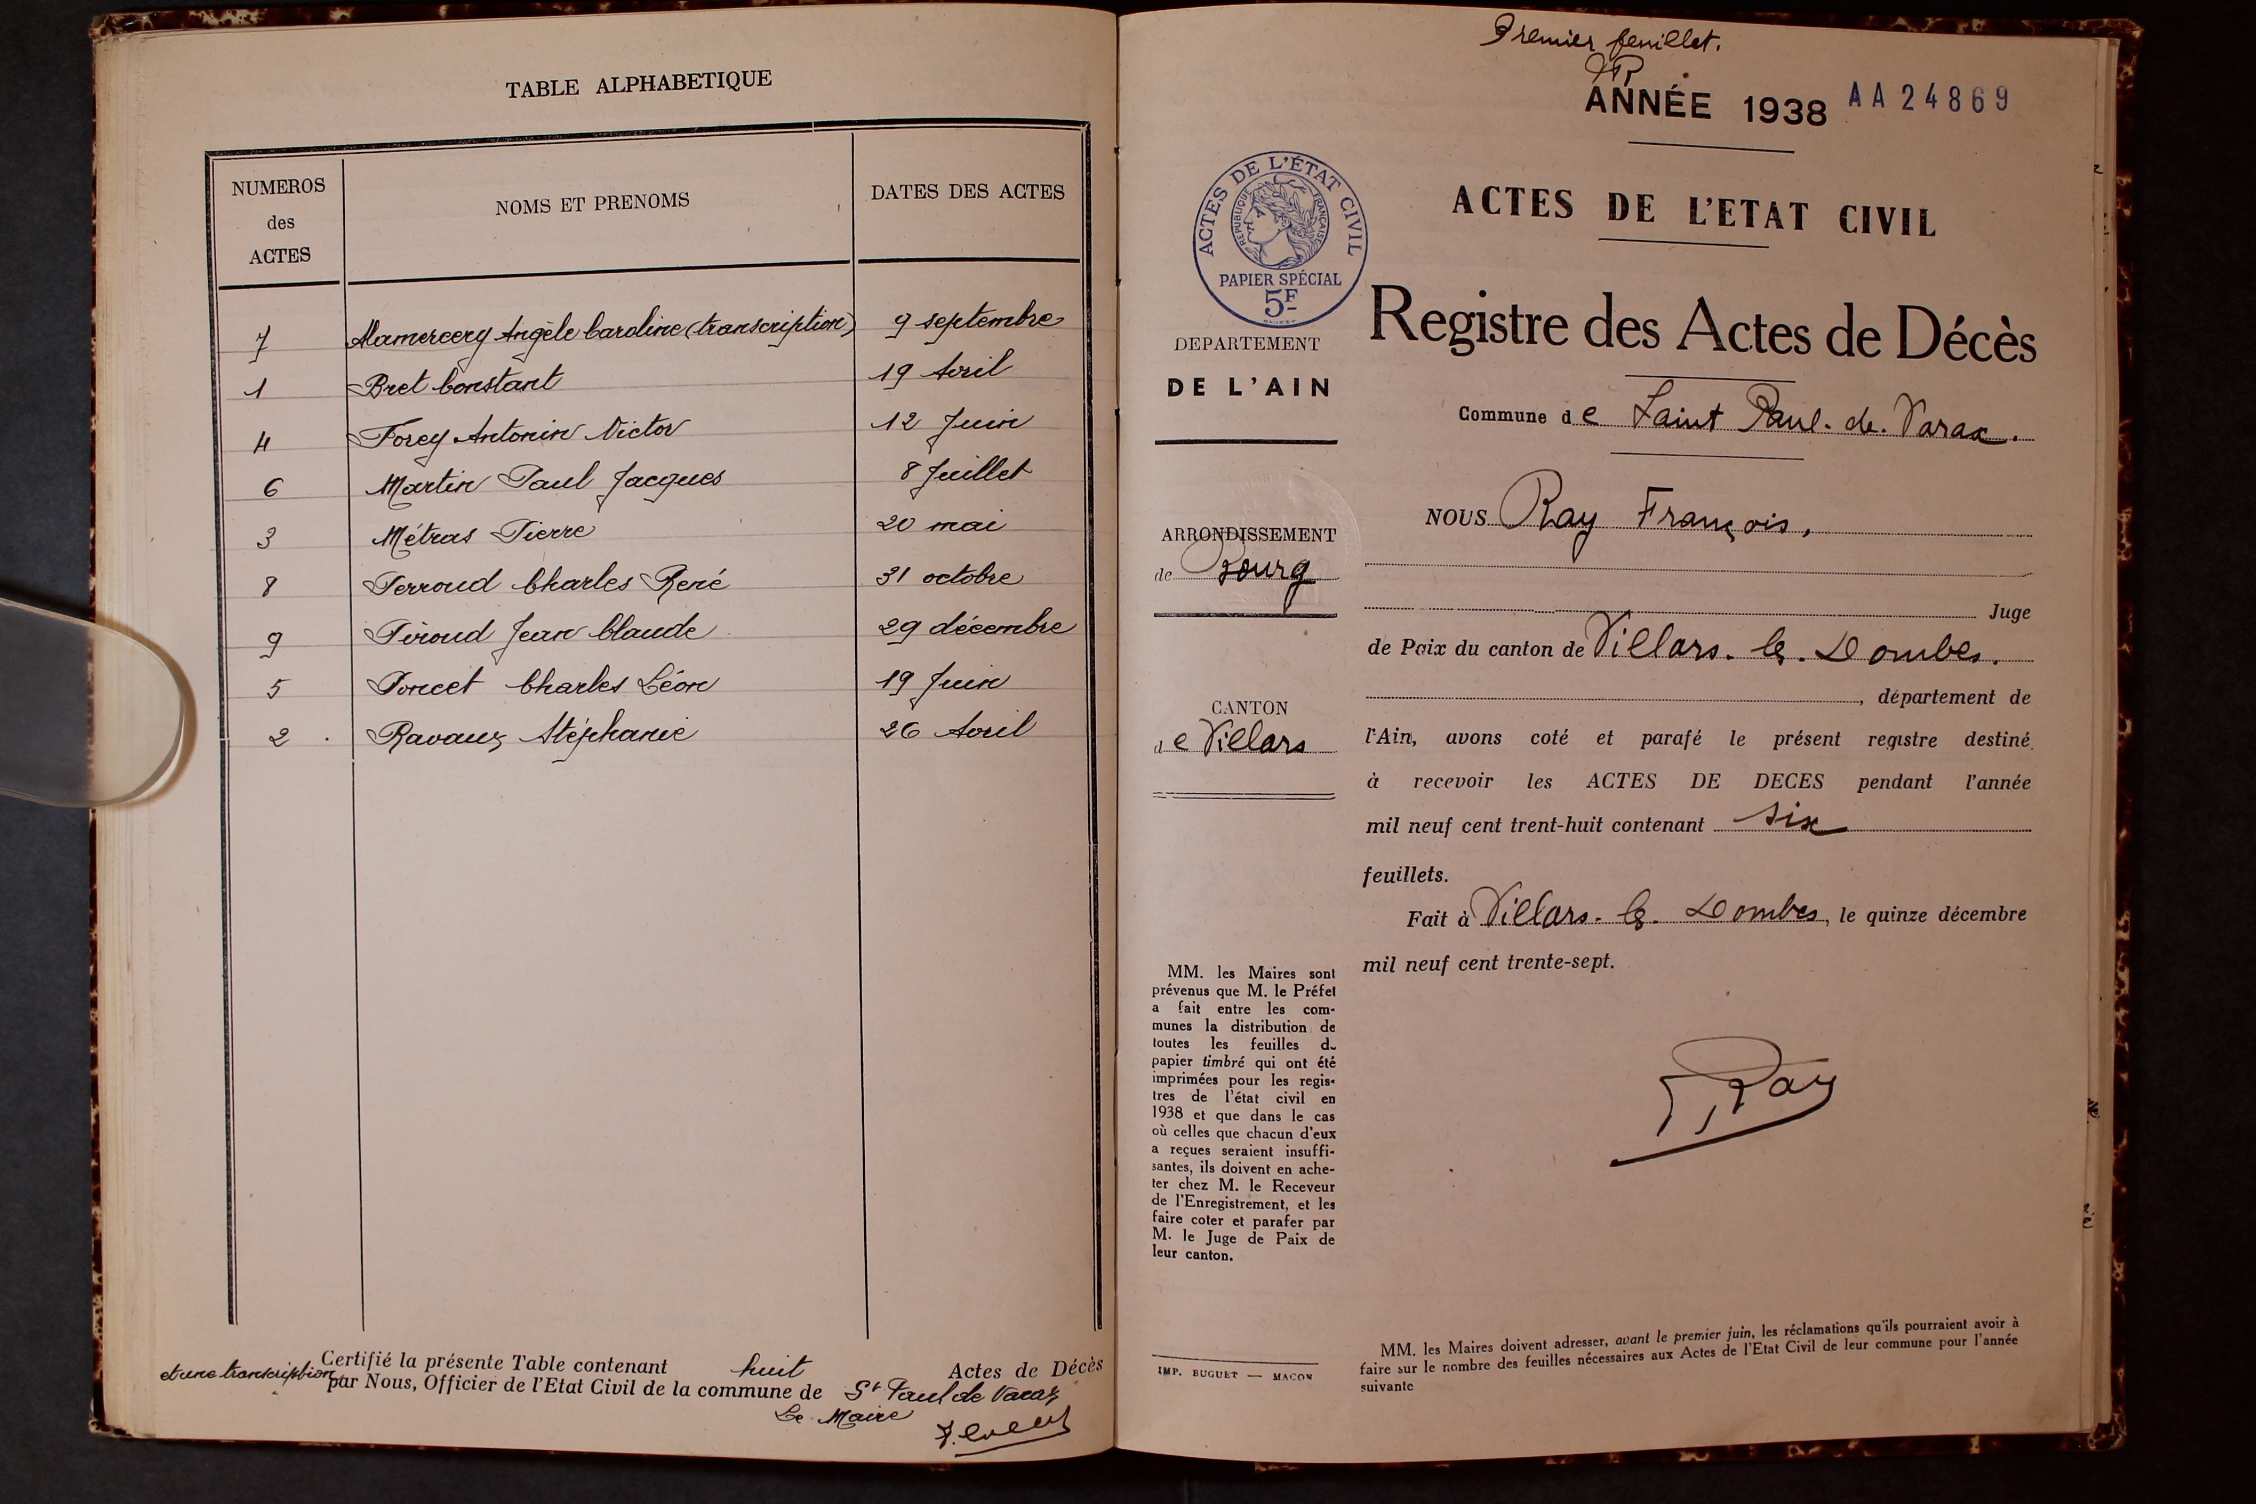 TABLE ALPHABETIQUE
NUMEROS
des
ACTES
NOMS ET PRENOMS
DATES DES ACTES
7 Mamercery Angèle Caroline (transcription) 9 septembre
1 Bret Constant 19 Avril
4 Forey Antonin Victor 12 Juin
6 Martin Paul Jacques 8 Juillet
3 Métras Pierre 20 mai
8 Perroud Charles René 31 octobre
9 Piroud Jean Claude 29 décembre
5 Poncet Charles Léon 19 Juin
2 Ravaux Stéphanie 26 Avril
Certifié la présente Table contenant huit Actes de Décès
et une transcription
par Nous, Officier de l'Etat Civil de la commune de St Paul de Varax
Le Maire
Premier feuillet.
ANNÉE 1938
AA24869
ACTES DE L'ÉTAT CIVIL
RÉPUBLIQUE FRANÇAISE
PAPIER SPÉCIAL
5F
DEPARTEMENT
DE L'AIN
ARRONDISSEMENT
de Bourg
CANTON
de Villars
MM. les Maires sont
prévenus que M. le Préfet
a fait entre les com-
munes la distribution de
toutes les feuilles de
papier timbré qui ont été
imprimées pour les regis-
tres de l'état civil en
1938 et que dans le cas
où celles que chacun d'eux
a reçues seraient insuffi-
santes, ils doivent en ache-
ter chez M. le Receveur
de l'Enregistrement, et les
faire coter et parafer par
M. le Juge de Paix de
leur canton.
IMP. BUGUET — MACON
ACTES DE L'ETAT CIVIL
Registre des Actes de Décès
Commune de Saint Paul. de. Varax.
NOUS Ray François,
Juge
de Paix du canton de Villars. les. Dombes.
, département de
l'Ain, avons coté et parafé le présent registre destiné
à recevoir les ACTES DE DECES pendant l'année
mil neuf cent trent-huit contenant six
feuillets.
Fait à Villars. les. Dombes, le quinze décembre
mil neuf cent trente-sept.
Ray
MM. les Maires doivent adresser, avant le premier juin, les réclamations qu'ils pourraient avoir à
faire sur le nombre des feuilles nécessaires aux Actes de l'Etat Civil de leur commune pour l'année
suivante